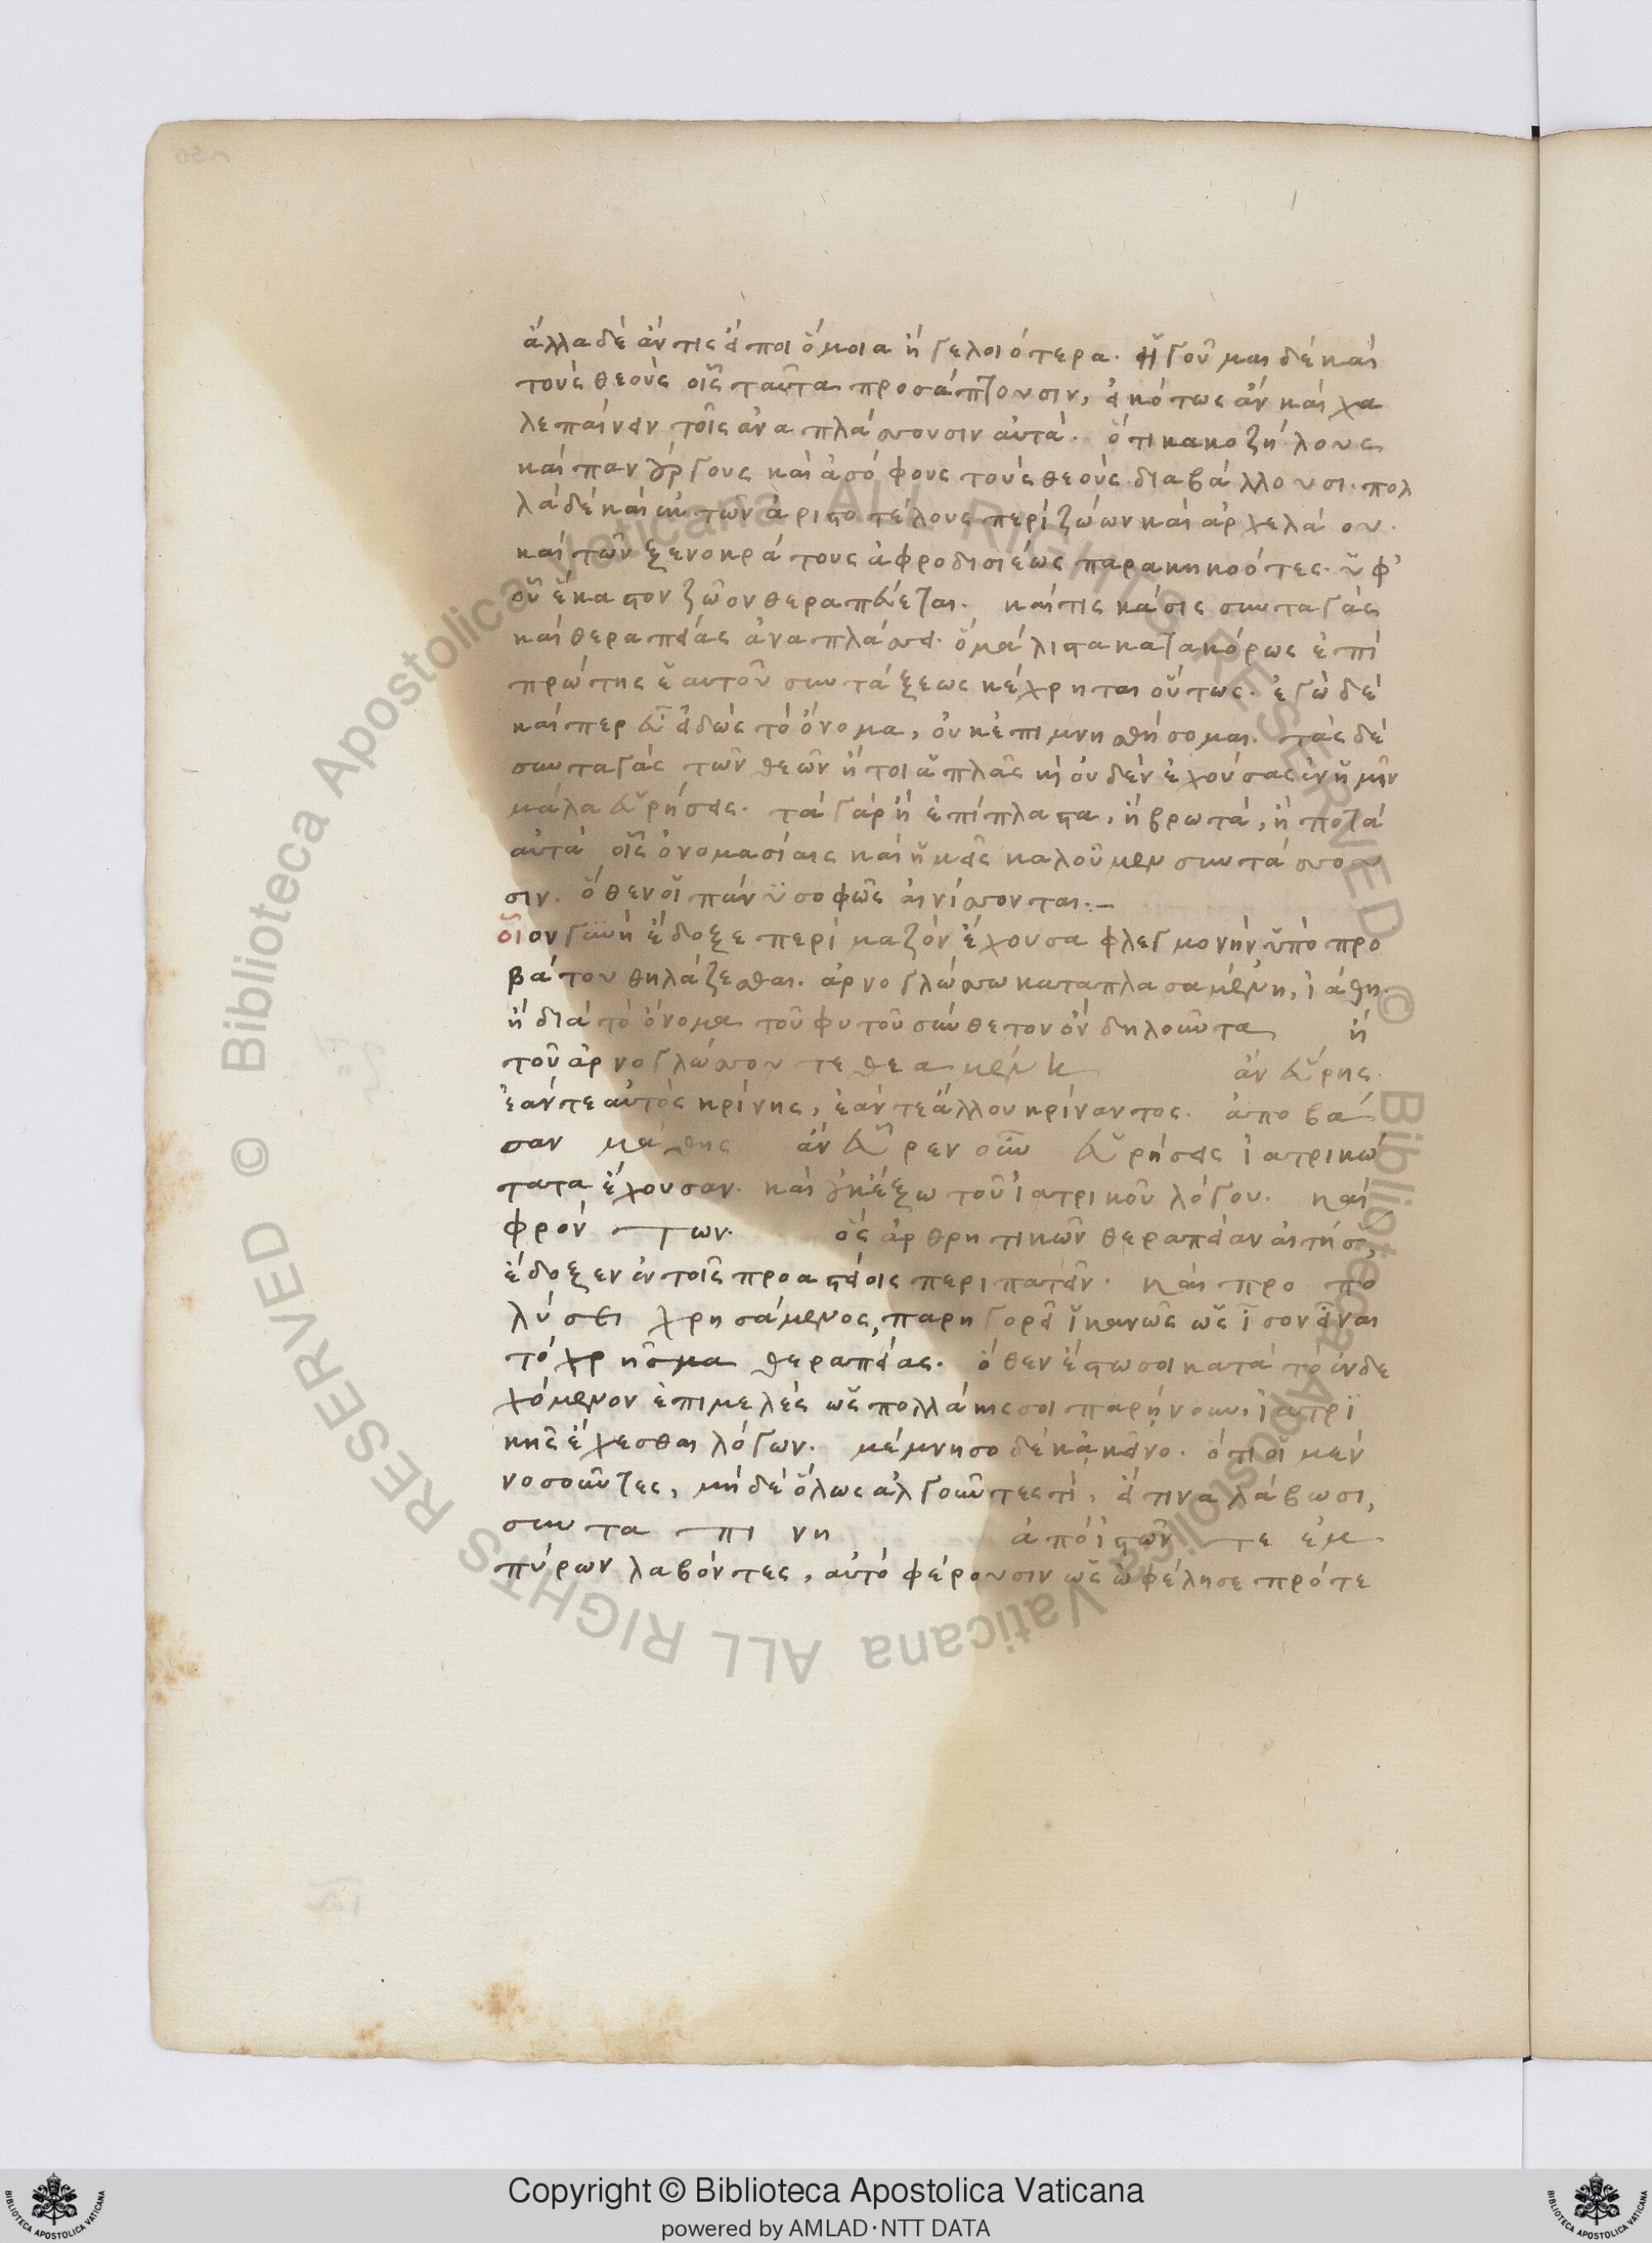 ἄλλα δὲ ἄν τις εἴποι ὅμοια ἢ γελοιότερα. ἡγοῦμαι δὲ καὶ
τοὺς θεοὺς οἷς ταῦτα προσάπτουσιν, εἰκότως ἂν καὶ χα
λεπαίνειν τοῖς ἀναπλάσσουσιν αὐτά. ὅτι κακοζήλους
καὶ πανούργους καὶ ἀσόφους τοὺς θεοὺς διαβάλλουσι. πολ
λὰ δὲ καὶ ἐκ τῶν ἀριστοτέλους περὶ ζώων καὶ ἀρχελάου.
καὶ τῶν ξενοκράτους ἀφροδισιέως παρακηκοότες. ὑφ'
οὗ ἕκαστον ζῶον θεραπεύεται. καί τις κάσις συνταγὰς
καὶ θεραπείας ἀναπλάσσει. ὃ μάλιστα κατακόρως ἐπὶ
πρώτης ἑαυτοῦ συντάξεως κέχρηται οὕτως. ἐγὼ δὲ
καίπερ εὖ εἰδὼς τὸ ὄνομα, οὐκ ἐπιμνησθήσομαι. τὰς δὲ
συνταγὰς τῶν θεῶν ἤτοι ἁπλᾶς κὴ οὐδὲν ἐχούσας αἴνιγμα
μάλα εὑρήσεις. τὰ γὰρ ἢ ἐπίπλαστα, ἢ βρωτά, ἢ ποτὰ
αὐτὰ οἷς ὀνομασίαις καὶ ἡμεῖς καλοῦμεν συντάσσου
σιν. ὅθεν οἱ πάνυ σοφῶς αἰνίσσονται.
οἷον γυνὴ ἔδοξε περὶ μαζὸν ἔχουσα φλεγμονὴν, ὑπὸ προ
βάτου θηλάζεσθαι. ἀρνογλώσσω καταπλασαμένη, ἰάθη.
ἢ διὰ τὸ ὄνομα τοῦ φυτοῦ σύνθετον ὂν δηλοῦντα ἡ
τοῦ ἀρνογλώσσου τεθεαμένη ἂν εὕρης.
ἐάν τε αὐτὸς κρίνης, ἐάν τε ἄλλου κρίναντος. ἀποβᾶ
σαν μάθης ἂν εὗρεν οὖν εὑρήσεις ἰατρικώ
τατα ἔχουσαν. καὶ οὐκ ἔξω τοῦ ἰατρικοῦ λόγου. καὶ
φρόν των. ὃς ἀρθρητικῶν θεραπείαν αἰτήσ,
ἔδοξεν ἐν τοῖς προαστείοις περιπατεῖν. καὶ προ πο
λύσει χρησάμενος, παρηγορεῖ ἱκανῶς ὡς ἶσον εἶναι
τὸ χρῆσμα θεραπείας. ὅθεν ἔστω σοι κατὰ τὸ ἐνδε
χόμενον ἐπιμελὲς ὡς πολλάκις σοι παρήνουν, ἰατρι
κῆς ἔχεσθαι λόγων. μέμνησο δὲ κἀκεῖνο. ὅτι οἱ μὲν
νοσοῦντες, μηδὲ ὅλως ἀλγοῦντες τι, εἴ τινα λάβωσι,
συν τα πι νη ἀπόϊστῶν τε ἐμ
πύρων λαβόντες, αὐτὸ φέρουσιν ὡς ὠφέλησε πρότε
Copyright © Biblioteca Apostolica Vaticana
powered by AMLAD·NTT DATA